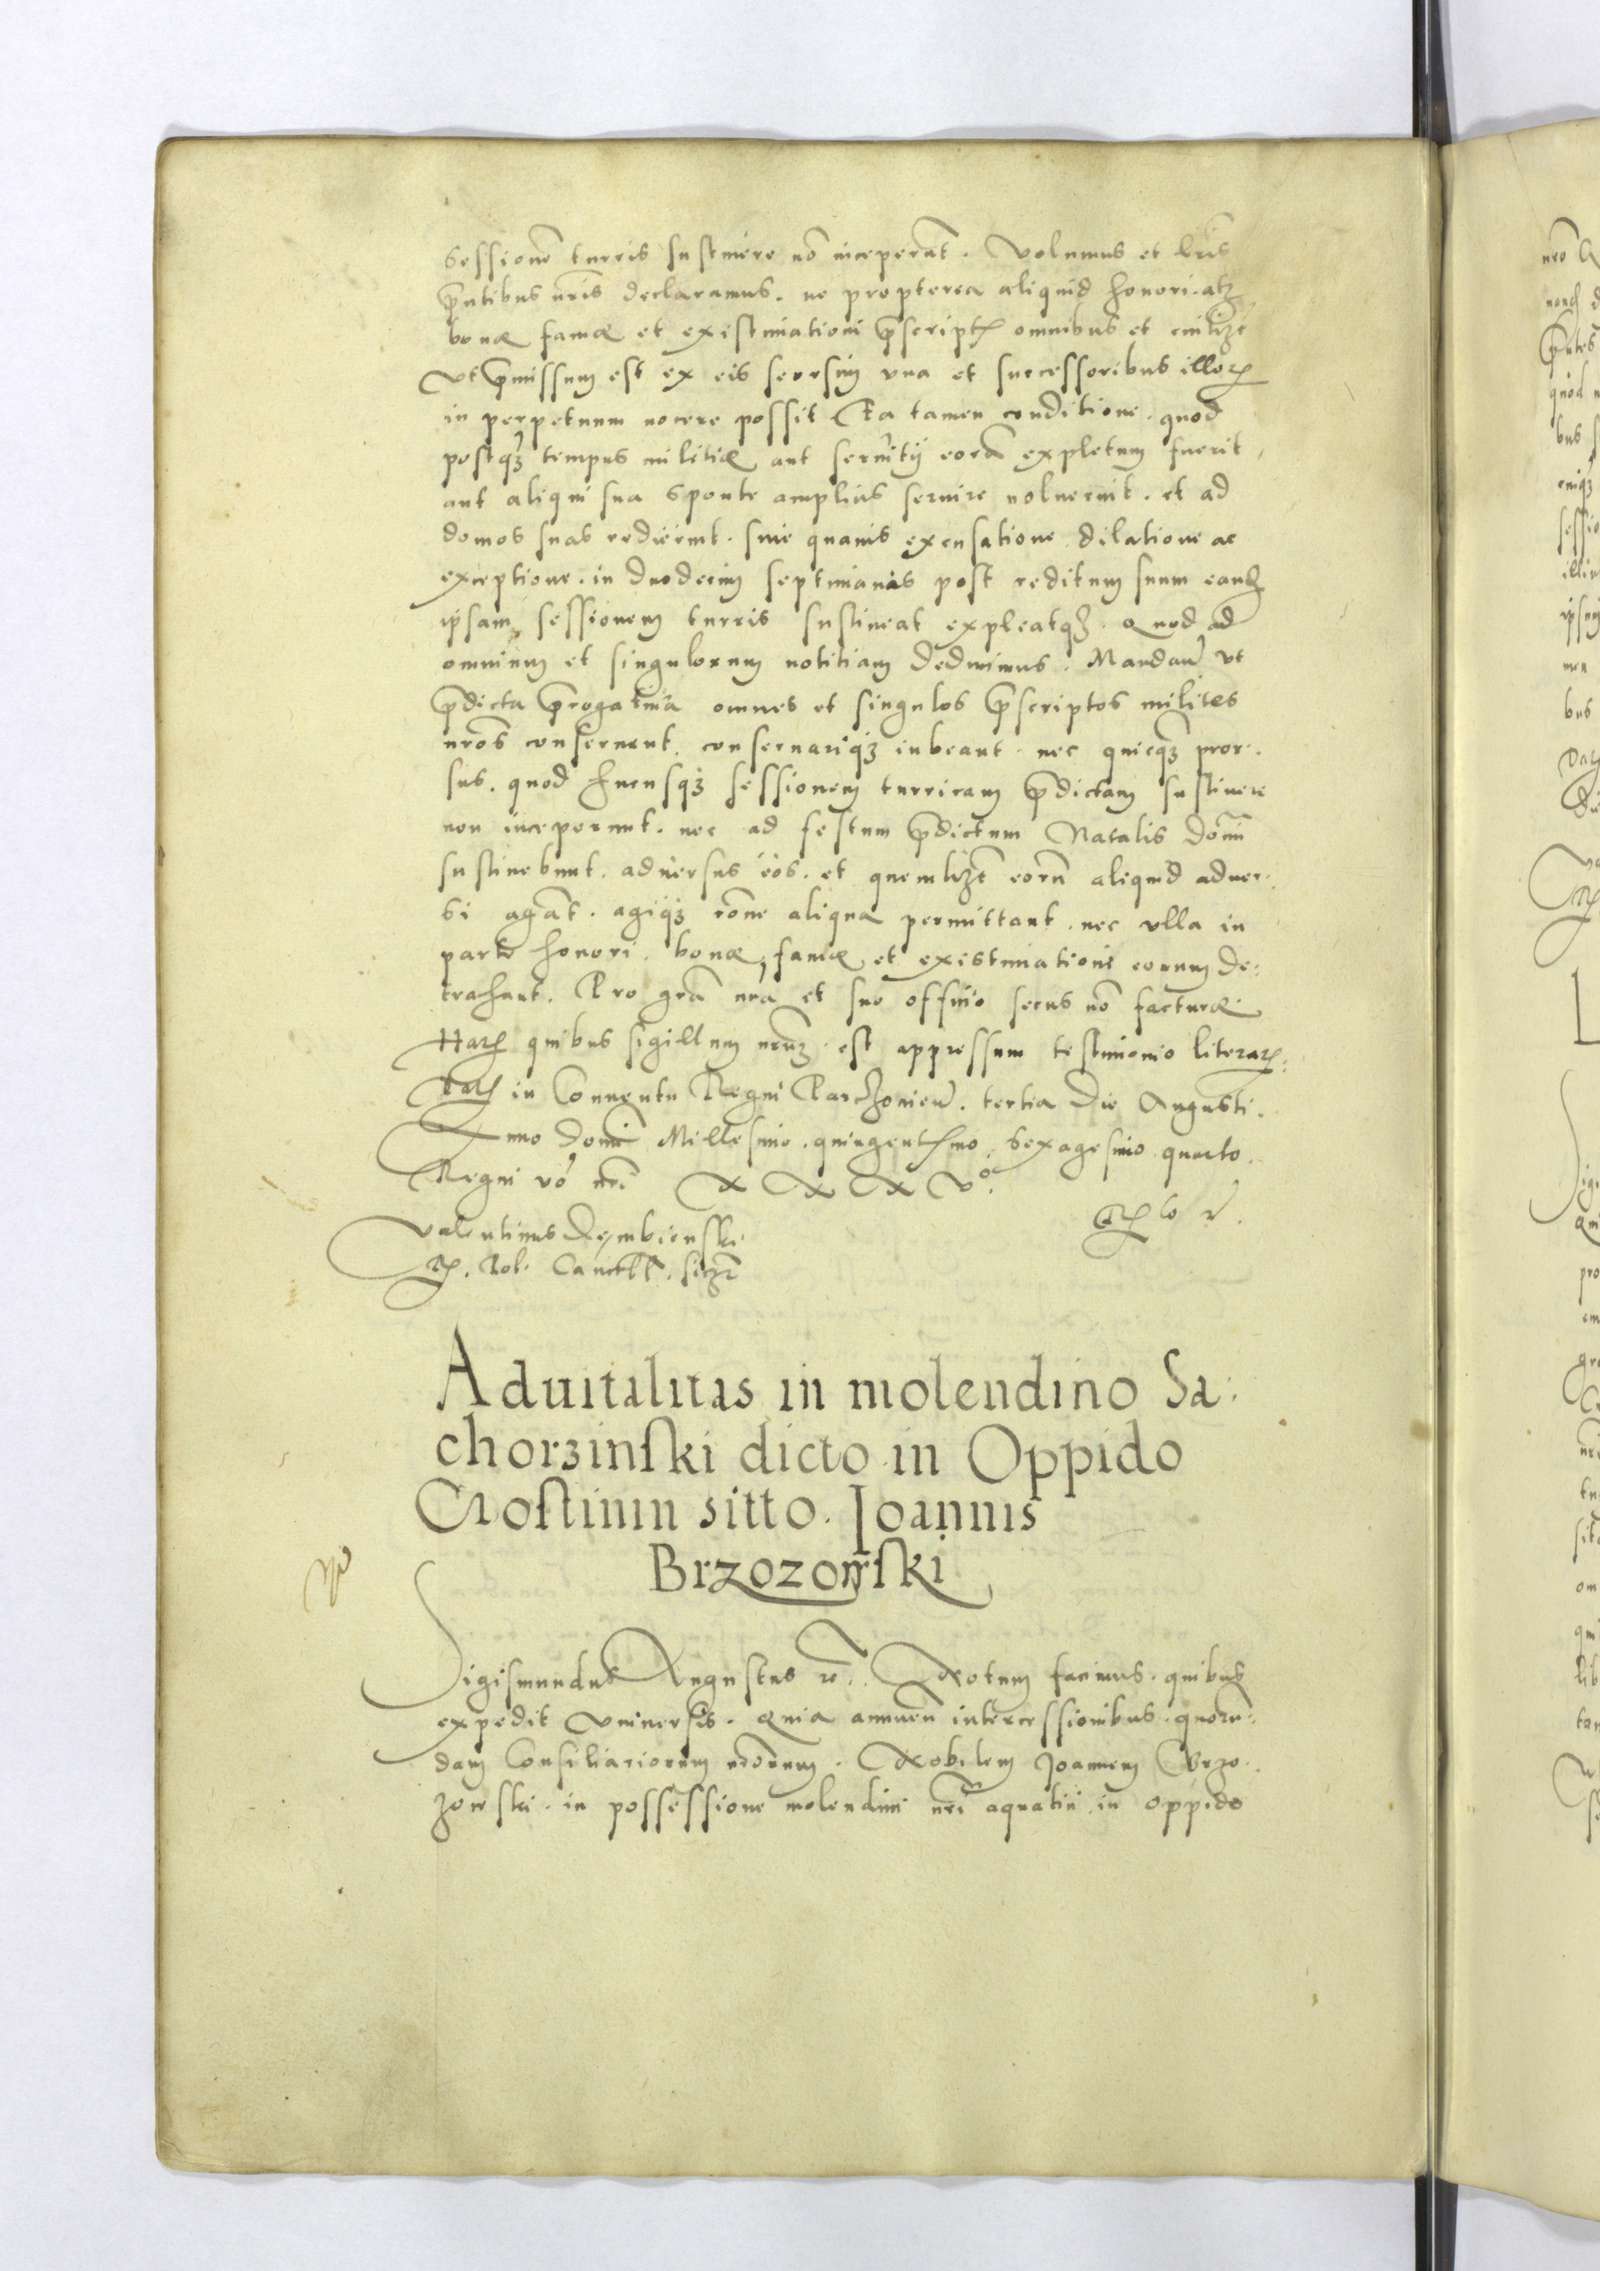 sessionē turris sustinere nō inceperāt. Volumus et lr̄is
p̄ntibus nr̄is declaramus. ne propterea aliquid honori. atq;
bonæ famæ et existimationi p̄script omnibus et cuilibet
Vt p̄missum est ex eis seorsim vna et successoribus illorꝝ
in perpetuum nocere possit Ea tamen conditione. quod
postq̄ʒ tempus militiæ aut seruitij eorū expletum fuerit,
aut aliqui sua sponte amplius seruire noluerint. et ad
domos suas redierint. sine quauis excusatione dilatione ac
exceptione. in duodecim septimanis post reditum suum eand
ipsam sessionem turris sustineat expleatqʒ. Quod ad
omnium et singulorum notitiam deducimus. Mandaṅ vt
p̄dicta p̄rogatiua omnes et singulos p̄scriptos milites
nr̄os conseruent. conseruariqʒ iubeant. nec quicqʒ pror.
sus. quod hucusqʒ sessionem turricam p̄dictam sustinere
non inceperunt. nec ad festum p̄dictum Natalis Domī
sustinebunt. aduersus eos. et quemlibet eorū aliquid aduer.
si agāt. agiqʒ rōne aliqua permittant. nec vlla in
parte honori. bonæ, famæ et existimationi eorum de:
trahant. Pro grā nr̄a et suo officio secus nō facturæ.
Harꝝ quibus sigillum nr̄um est appressum testimonio literarꝝ.
Datꝫ in Conuentu Regni Parczouieṅ. tertia die Augusti.
Anno domī Millesimo. quingentꝫmo, sexagesimo quarto.
Regni vō nr̄i X X X Vo.
Valentinus Dembienski
R. Pol. Cancell. sszt
Aduitalitas in molendino Sa.
chorzinski dicto in Oppido
Crostinin sitto. Joannis
Brzozowski
Sigismundus Augustus rc. Notum facimus. quibus
expedit Vniuersis. Quia annuen̄ intercessionibus. quorū.
dam Consiliariorum nr̄orum. Nobilem Joannem Brzo.
zowski. in possessione molendini nr̄i aquatici in oppido